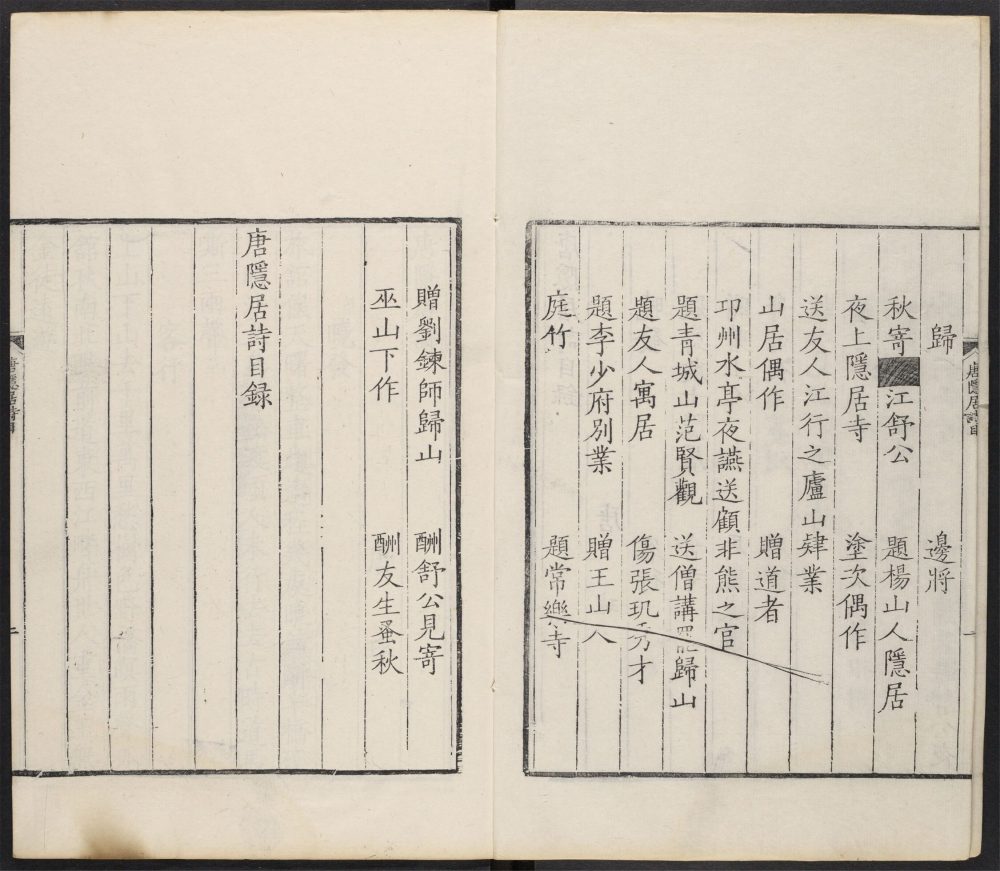 唐隱居詩目 一
歸 邊將
秋寄江舒公 題楊山人隱居
夜上隱居寺 塗次偶作
送友人江行之廬山肄業
山居偶作 贈道者
卭州水亭夜讌送顧非熊之官
題青城山范賢觀 送僧講罷歸山
題友人寓居 傷張玑秀才
題李少府別業 贈王山人
庭竹 題常樂寺
贈劉鍊師歸山 酬舒公見寄
巫山下作 酬友生蚤秋
唐隱居詩目録
唐隱居詩目